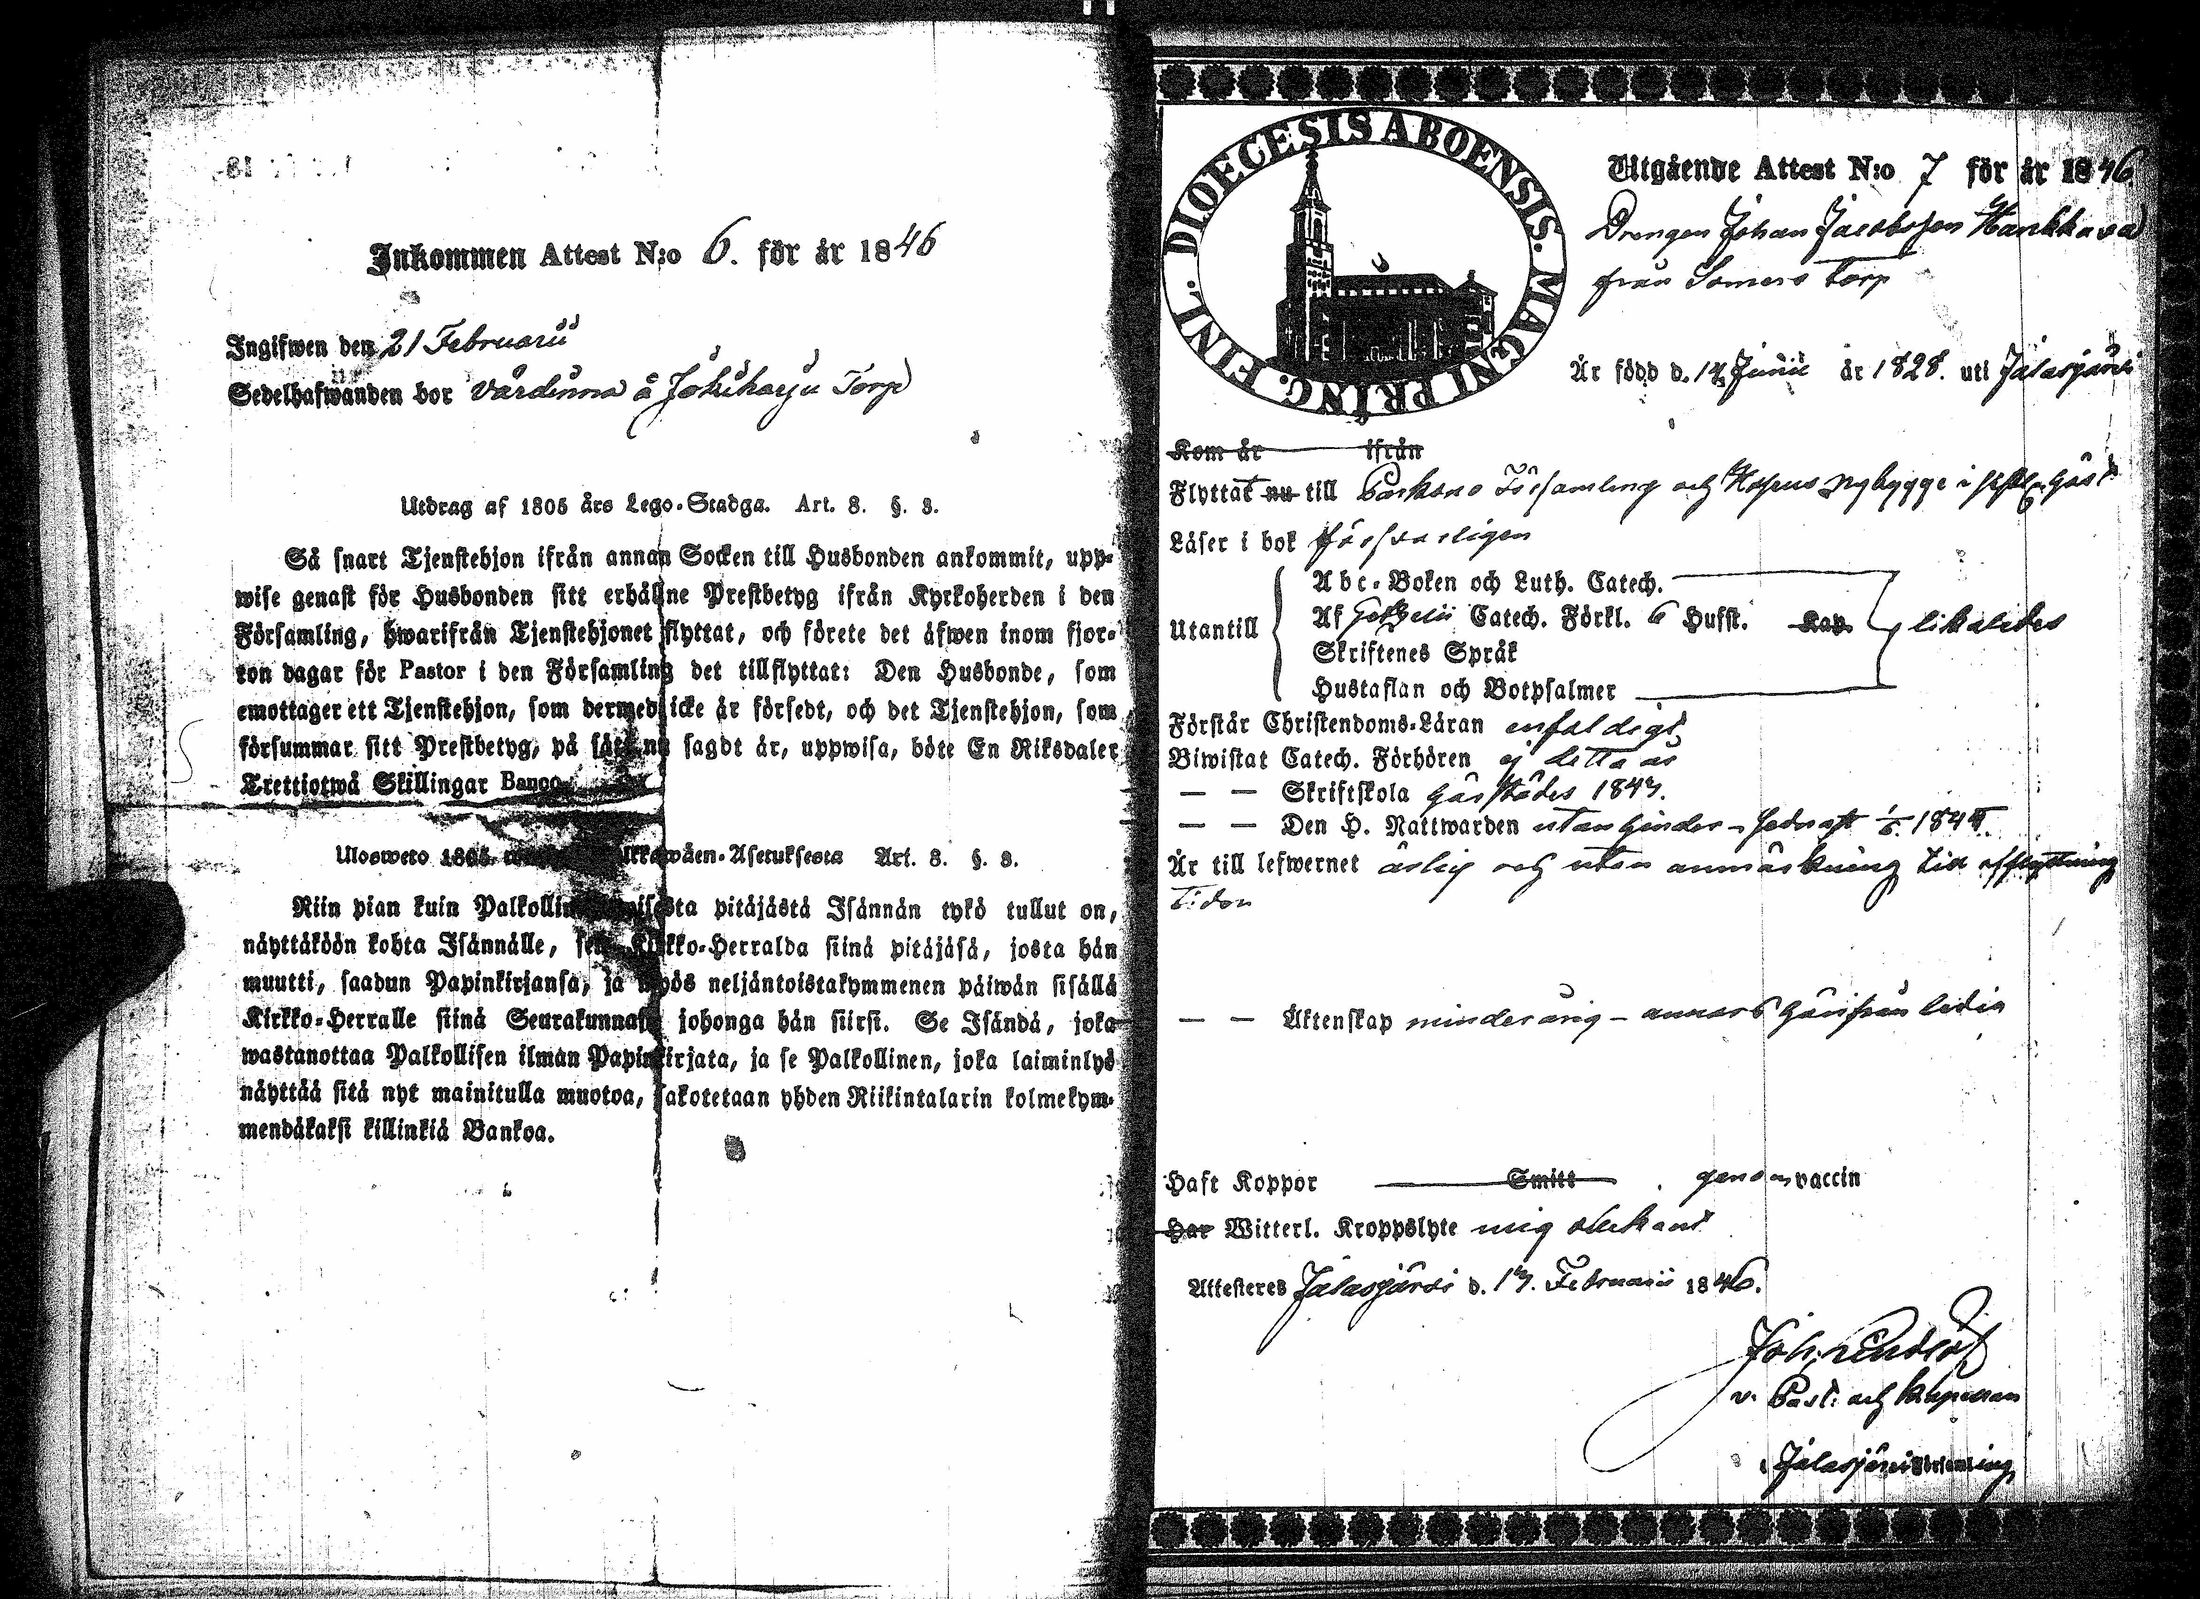 Inkommen Attest N:o 6. för år 1846
Ingifwen den 21 Februarii
Sedelhafwanden bor Värdinna å Jokiharju Torp
Utdrag af 1805 års Lego-Stadga. Art. 8. §. 3.
Så snart Tjenstehjon ifrån annan Socken till Husbonden ankommit, upp-
wise genast för Husbonden sitt erhållne Prestbetyg ifrån Kyrkoherden i den
Församling, hwarifrån Tjenstehjonet flyttat, och förete det äfwen inom fjor-
ton dagar för Pastor i den Församling det tillflyttat: Den Husbonde, som
emottager ett Tjenstehjon, som dermed icke är försedt, och det Tjenstehjon, som
försummar sitt Prestbetyg, på sätt nu sagdt är, uppwisa, böte En Riksdaler
Trettiotwå Skillingar Banco.
Ulosweto 1805 Asetuksesta Art. 8. §. 3.
Niin pian kuin Palkollinen pitäjästä Isännän tykö tullut on,
näyttäköön kohta Isännälle, sen Kirkko-Herralda siinä pitäjäsä, josta hän
muutti, saadun Papinkirjansa, ja myös neljäntoistakymmenen päiwän sisällä
Kirkko-Herralle siinä Seurakunnasa johonga hän siirsi. Se Isändä, joka
wastanottaa Palkollisen ilman Papinkirjata, ja se Palkollinen, joka laiminlyö
näyttää sitä nyt mainitulla muotoa, sakotetaan yhden Riikintalarin kolmekym-
mendäkaksi killinkiä Bankoa.
DIOECESIS ABOENSIS. MAGNI PRINC. FINL.
Utgående Attest N:o 7 för år 1846
Drengen Johan Jacobsson Hankkava
från Somero Torp
Är född d. 14 Junii år 1828. uti Jalasjärvi
Kom år ifrån
Flyttat nu till Parkano Församling och nybygge i
Läser i bok försvarligen
Abc-Boken och Luth. Catech.
Utantill Af Gezelii Catech. Förkl. 6 Hufst. Kap. likaledes
Skriftenes Språk
Hustaflan och Botpsalmer
Förstår Christendoms-Läran enfaldigt
Biwistat Catech. Förhören ej detta år
— — Skriftskola härstädes 1843.
— — Den H. Nattwarden utan hinder - sednast
Är till lefwernet ärlig och utan anmärkning till afflyttning
tiden
— — Äktenskap minderårig - annars härifrån ledig
Haft Koppor Smitt genom vaccin
Har Witterl. Kroppslyte mig obekant
Attesteres Jalasjärvi d. 13. Februarii 1846.
Joh:
v. Past: och Kapellan
i Jalasjärvi Församling